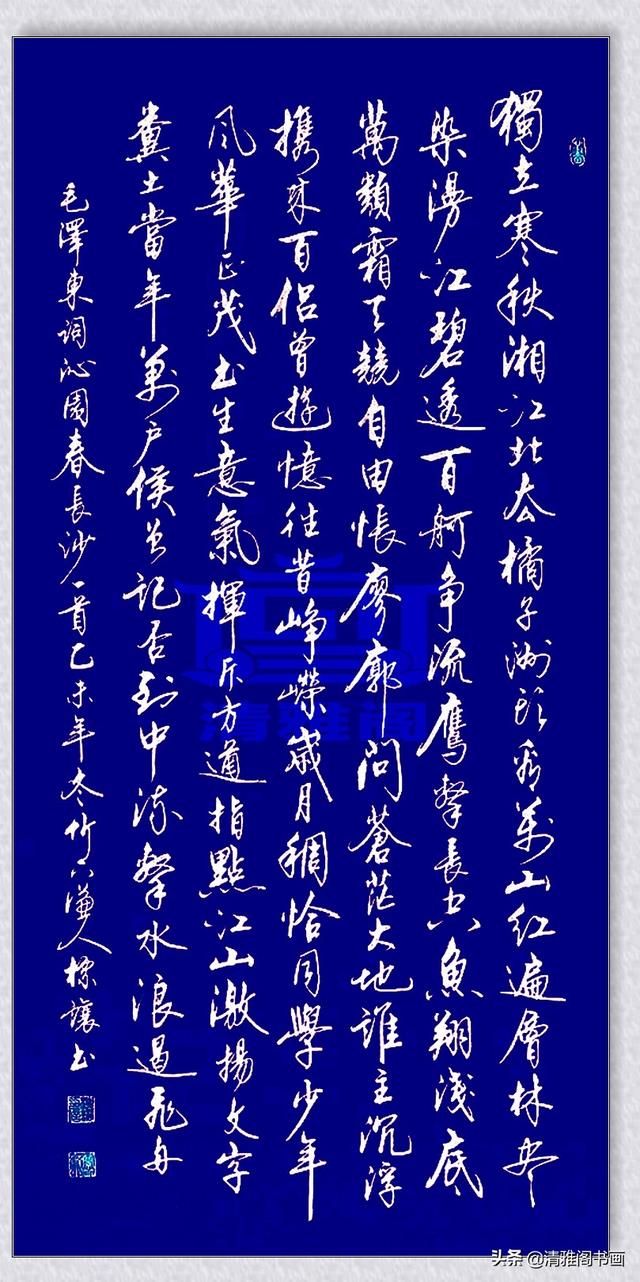 獨立寒秋湘江北去橘子洲頭看萬山紅遍層林盡
染漫江碧透百舸爭流鷹擊長空魚翔淺底
萬類霜天競自由悵廖廓問蒼茫大地誰主沉浮
携來百侣曾遊憶往昔崢嶸歲月稠恰同學少年
風華正茂書生意氣揮斥方遒指點江山激揚文字
糞土當年萬户侯曾記否到中流擊水浪遏飛舟
毛澤東詞沁園春長沙一首乙未年冬竹下謙人書
清雅阁
头条 @清雅阁书画